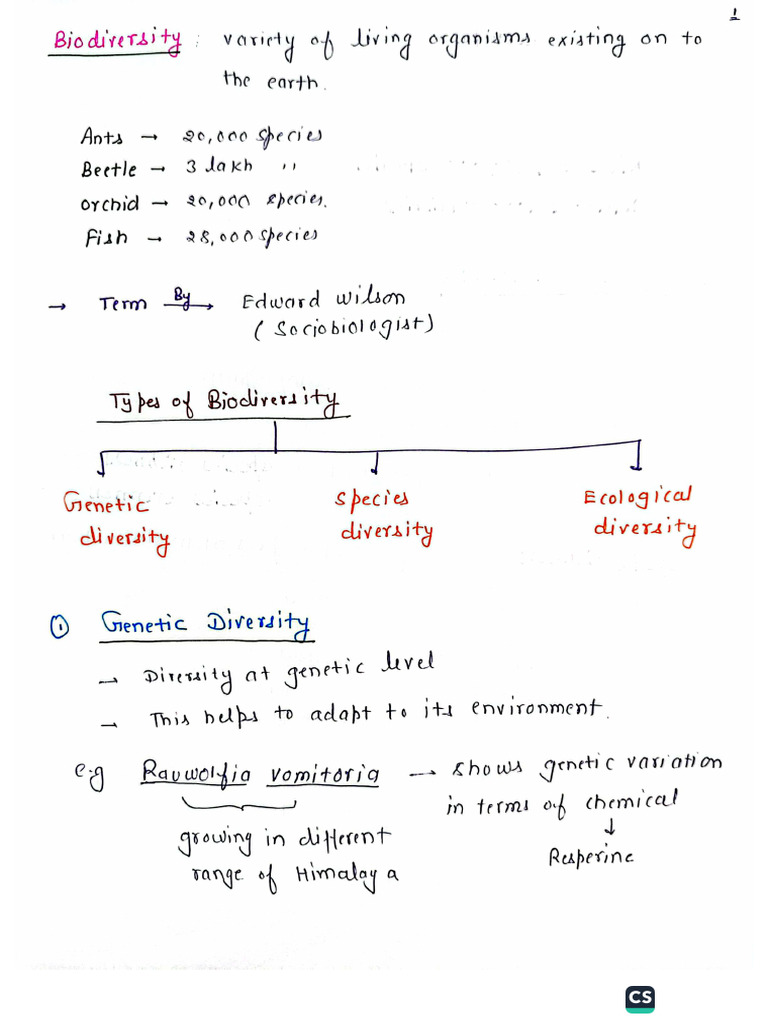 1
Biodiversity : variety of living organisms existing on to
the earth.
Ants → 20,000 species
Beetle → 3 lakh "
orchid → 20,000 species.
Fish → 28,000 species
→ Term By→ Edward wilson
(Sociobiologist)
Types of Biodiversity
Genetic diversity
Species diversity
Ecological diversity
① Genetic Diversity
→ Diversity at genetic level
→ This helps to adapt to its environment.
e.g Rauwolfia vomitoria → shows genetic variation
in terms of chemical
↓
Resperine
growing in different
range of Himalaya
CS